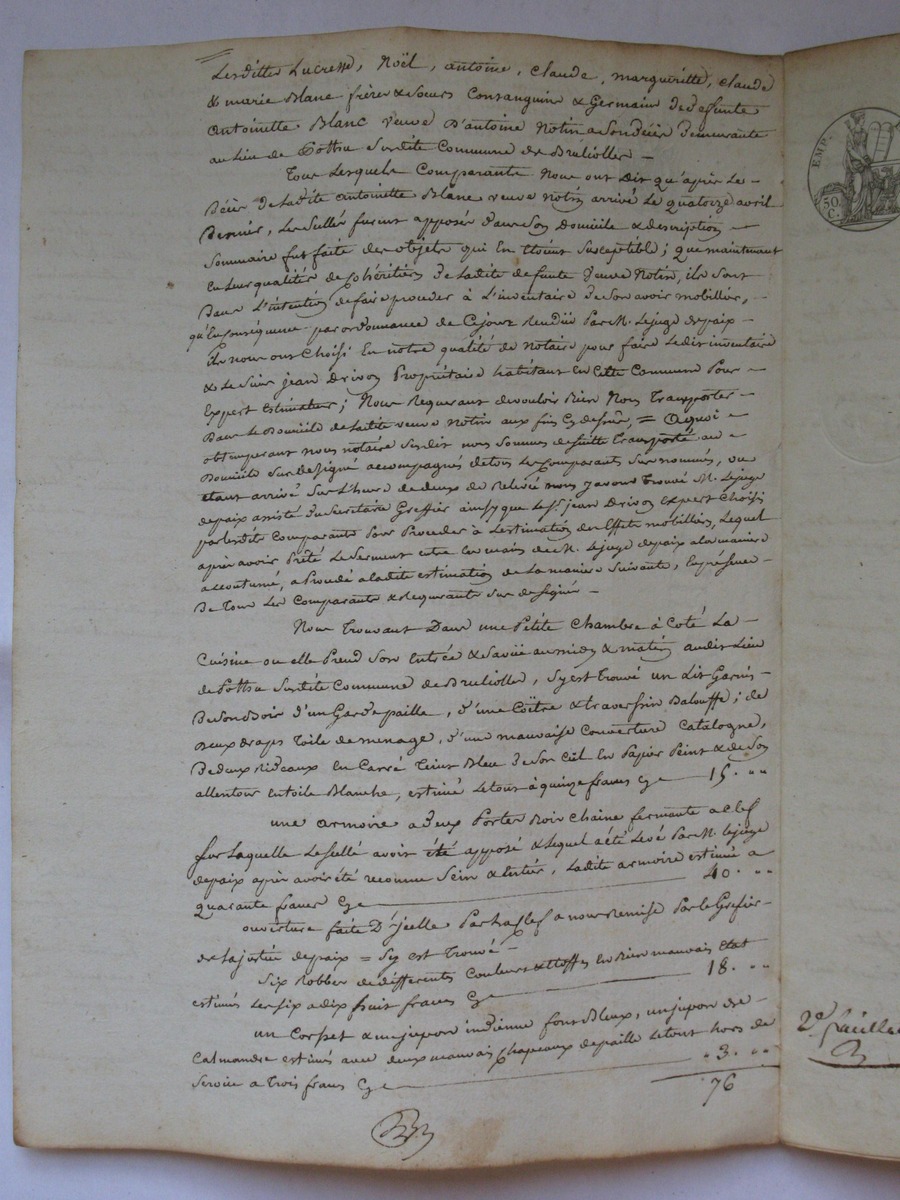 Lesdittes Lucresse, Noël, antoine, Claude, margueritte, Claude
& marie Blanc frères & Soeurs Consanguins & Germains de defunte
antoinette Blanc veuve D'antoine Notin a Son décès demeurante
au Lieu de Susdite Commune de Brulioles —
Tous Lesquels Comparants Nous ont Dit qu'après Le —
Décès de Ladite antoinette Blanc veuve Notin arrivé Le quatorze avril
Dernier, Les Sellés furent apposés dans Son Domicile & description —
Sommaire fut faite des objets qui En étoient Susceptible; que maintenant
en Leur qualités de Cohéritiers de Ladite defunte Veuve Notin, ils Sont
Dans L'intention de faire proceder à L'inventaire de Son avoir mobillier, —
qu'En Conséquence par ordonnance de Cejour Rendüe Par M. Le juge de paix —
ils nous ont Choisi En notre qualité de Notaire pour faire Ledit inventaire
& Le Sieur jean Drivon Propriétaire habitant En Cette Commune Pour —
Expert Estimateur; Nous Requerant de vouloir Bien Nous Transporter —
Dans Le Domicile de Ladite veuve Notin aux fins Cy dessus, = A quoi —
obtemperant nous notaire Susdit nous Sommes de suitte Transporté au —
Domicile Sus designé accompagnés de tous Les Comparants Sus nommés, ou
étant arrivé Sur L'heure de deux de Relevée nous y avons Trouvé M. Le juge
de paix assisté du Secretaire Greffier ainsy que Le Sr. jean Drivon Expert Choisi
par Lesdits Comparants Pour Proceder à L'estimation des Effets mobilliers, Lequel
après avoir Prêté Le Serment entre Les mains de M. Le juge de paix a la maniere
accoutumé, a Procedé a ladite estimation de La maniere Suivante, En présence —
De Tous Les Comparants & Requerants Sus designés —
Nous Trouvant Dans une Petite Chambre à Coté La —
Cuisine ou elle Prend Son Entrée & Sortie au midy & matin audit Lieu
de Susdite Commune de Brulioles, S'y est Trouvé un Lit Garni
De Son Bois d'un Garde paille, d'une Coëtre & traversin Balouffe; de
Deux draps Toile de menage, d'une mauvaise Couverture Catalogne,
De deux Rideaux en Carré Teint Bleu de Son Ciel En Papier Peint & de Son
allentour en toile Blanche, estimé Le tout à quinze francs Cy — 15. " "
une armoire a deux Portes Bois Chaine fermante a Clef
Sur Laquelle Le Sellé avoit été apposé & Lequel a été Levé Par M. Le juge
de paix après avoir été reconnu Sein & Entier, Ladite armoire estimée a
quarante francs Cy — 40. " "
ouverture faite D'ycelle Par La Clef a nous Remise Par Le Grefier —
de La justice de paix = S'y est Trouvé —
Six Robbes de differents Couleurs & Etoffes En Bien mauvais Etat
estimés Les Six a dix huit francs Cy — 18. " "
un Corset & un jupon indienne fond Bleux, un jupon de —
Calmandre estimés avec deux mauvais Chapeaux de paille Le tout hors de
Service a Trois francs Cy — " 3. " "
76
EMP.
50
C.
2e. feuillet